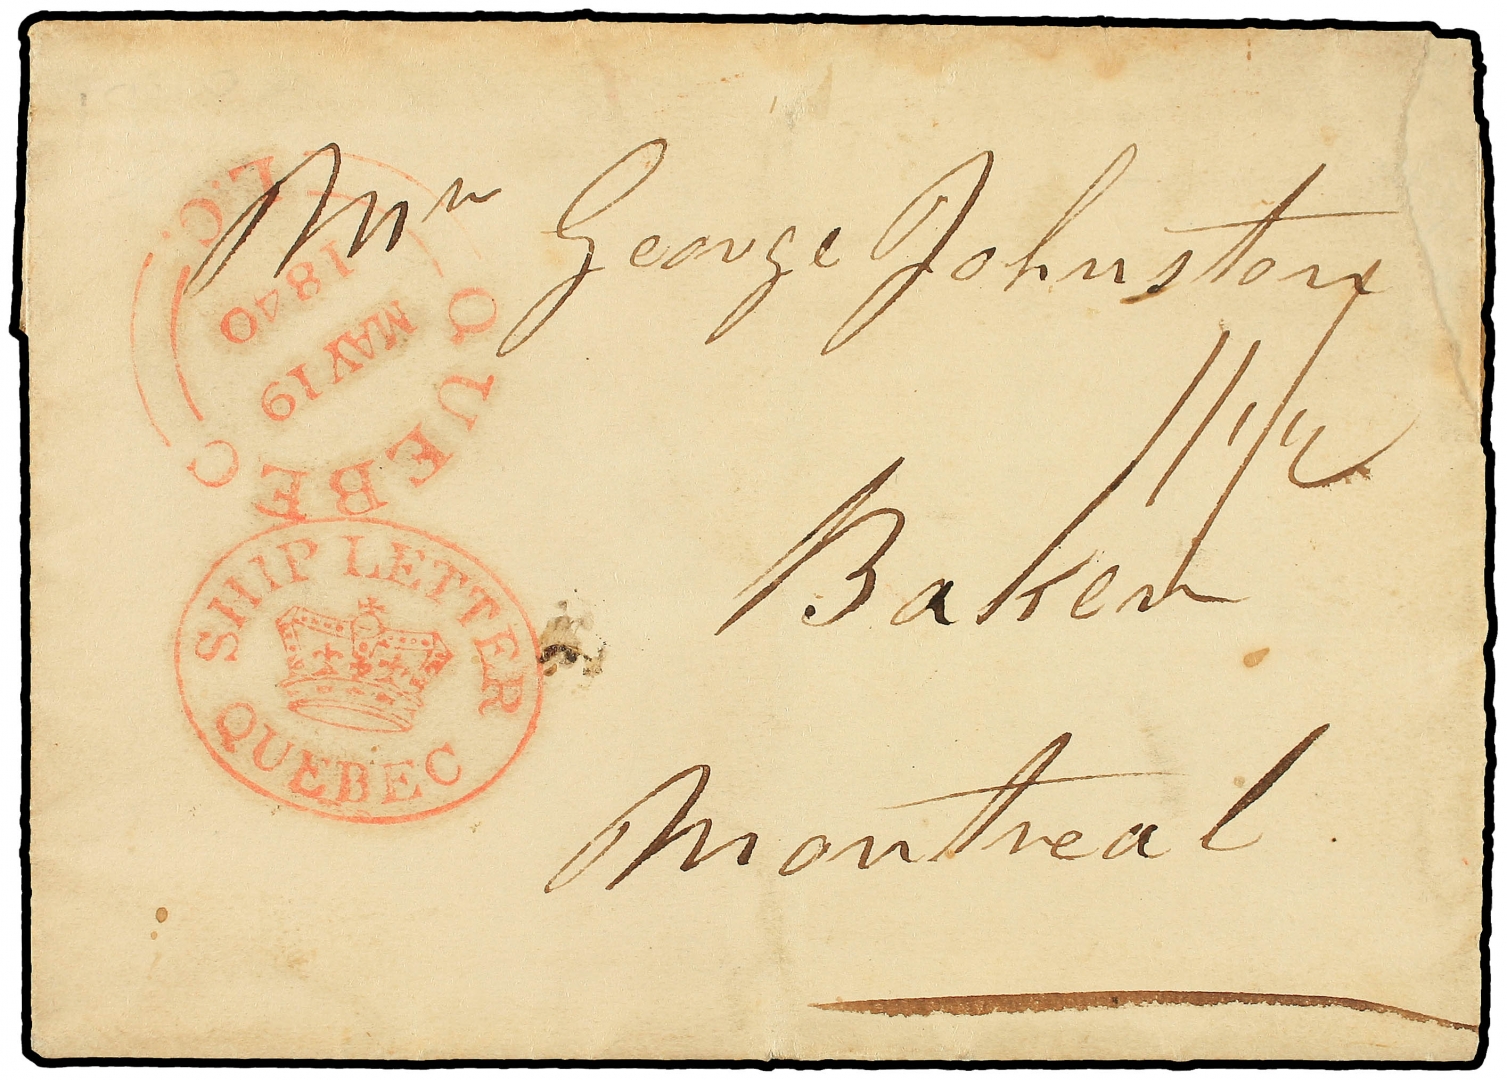 Mr George Johnston
11½
Baker
Montreal
QUEBEC
L.C.
MAY 19
1840
SHIP LETTER
QUEBEC